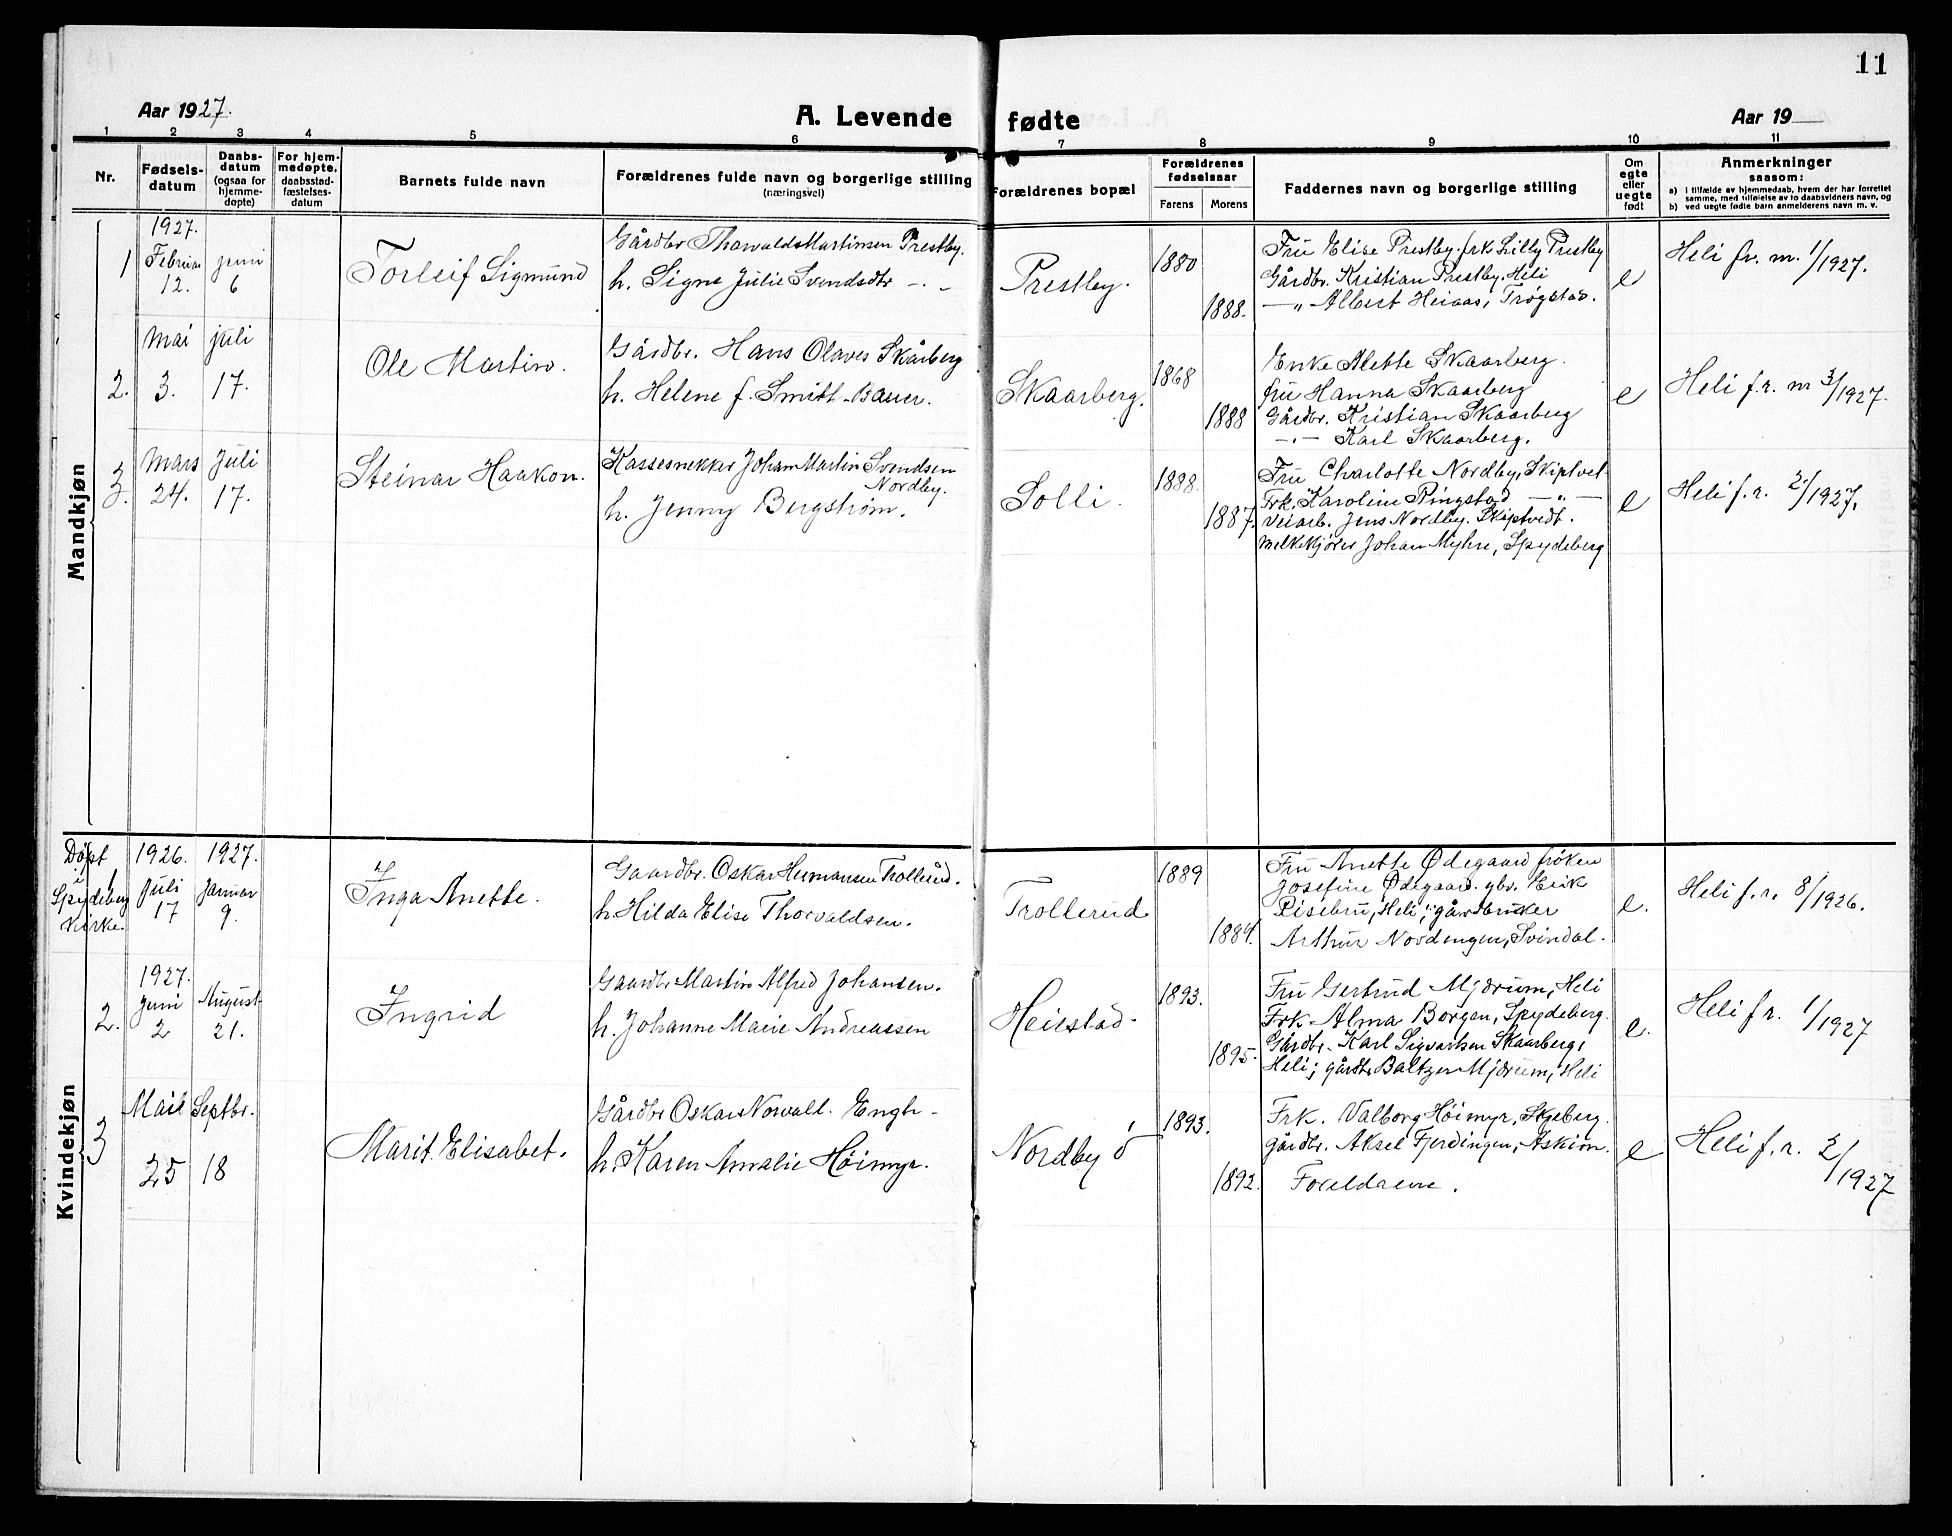 11
Aar 1927.
A. Levende fødte
Aar 19
1 2 3 4 5 6 7 8 9 10 11
Nr.
Fødsels-
datum
Daabs-
datum
(ogsaa for
hjemme-
døpte)
For hjem-
medøpte,
daabsstad-
fæstelses-
datum
Barnets fulde navn
Forældrenes fulde navn og borgerlige stilling
(næringsvei)
Forældrenes bopæl
Forældrenes
fødselsaar
Farens Morens
Faddernes navn og borgerlige stilling
Om
egte
eller
uegte
født
Anmerkninger
saasom:
a) i tilfælde av hjemmedaab, hvem der har forrettet
samme, med tilføielse av to daabsvidners navn, og
b) ved uegte fødte barn anmelderens navn m. v.
Mandkjøn
1
1927.
Februar
12.
juni
6
Torleif Sigmund
Gårdbr Thorvald Martinsen Prestby.
h. Signe Julie Svendsdtr -„-
Prestby.
1880
1888.
Fru Elise Prestby. frk Lilly Prestby
Gårdbr. Kristian Prestby. Heli
—„ Albert Heiaas, Trøgstad.
e
Heli fr. m. 1/1927.
2.
Mai
3.
juli
17.
Ole Martin.
Gårdbr. Hans Olaves Skårberg
h. Helene f. Smitt-Bauer.
Skaarberg.
1868
1888
Enke Alette Skaarberg.
fru Hanna Skaarberg
Gårdbr. Kristian Skaarberg
—„— Karl Skaarberg.
e
Heli f.r. m 3/1927.
3.
Mars
24.
Juli
17.
Steinar Haakon.
Kassesnekker Johan Martin Svendsen
Nordby.
h. Jenny Bergstrøm.
Solli.
1888.
1887.
Fru Charlotte Nordby, Skiptvet
Frk. Karoline Ringstad —„—
Veiarb. Jens Nordby. Skiptvedt.
Melkekjører Johan Myhre, Spydeberg
e
Heli f.r. 2/1927.
Kvindekjøn
Døpt
i
Spydeberg
kirke.
1
1926.
Juli
17
1927.
Januar
9.
Inga Anette.
Gaardbr. Oskar Hermansen Trollerud.
h. Hilda Elise Thorvaldsen.
Trollerud
1889
1884.
Fru Anette Ødegaard frøken
Josefine Ødegaard. gbr. Erik
Risebru, Heli; gårdbruker
Arthur Nordengen, Svindal.
e.
Heli f.r. 8/1926.
2.
1927.
Juni
2
August
21.
Ingrid
Gaardbr Martin Alfred Johansen.
h. Johanne Marie Andreassen
Heiestad.
1893.
1895.
Fru Gertrud Mjærum, Heli
Frk. Alma Borgen, Spydeberg.
Gårdbr. Karl Sigvartsen Skaarberg,
Heli; gårdbr Baltzer Mjærum, Heli
e.
Heli f r. 1/1927
3
Mai
25
Septbr.
18
Marit Elisabet.
Gårdbr Oskar Norvall. Engh-
h. Karen Amalie Höimyr.
Nordby ö
1893.
1892.
Frk. Valborg Höimyr, Skjeberg.
gårdbr. Aksel Fjerdingen, Askim.
Foreldrene.
e
Heli f.r. 2/1927